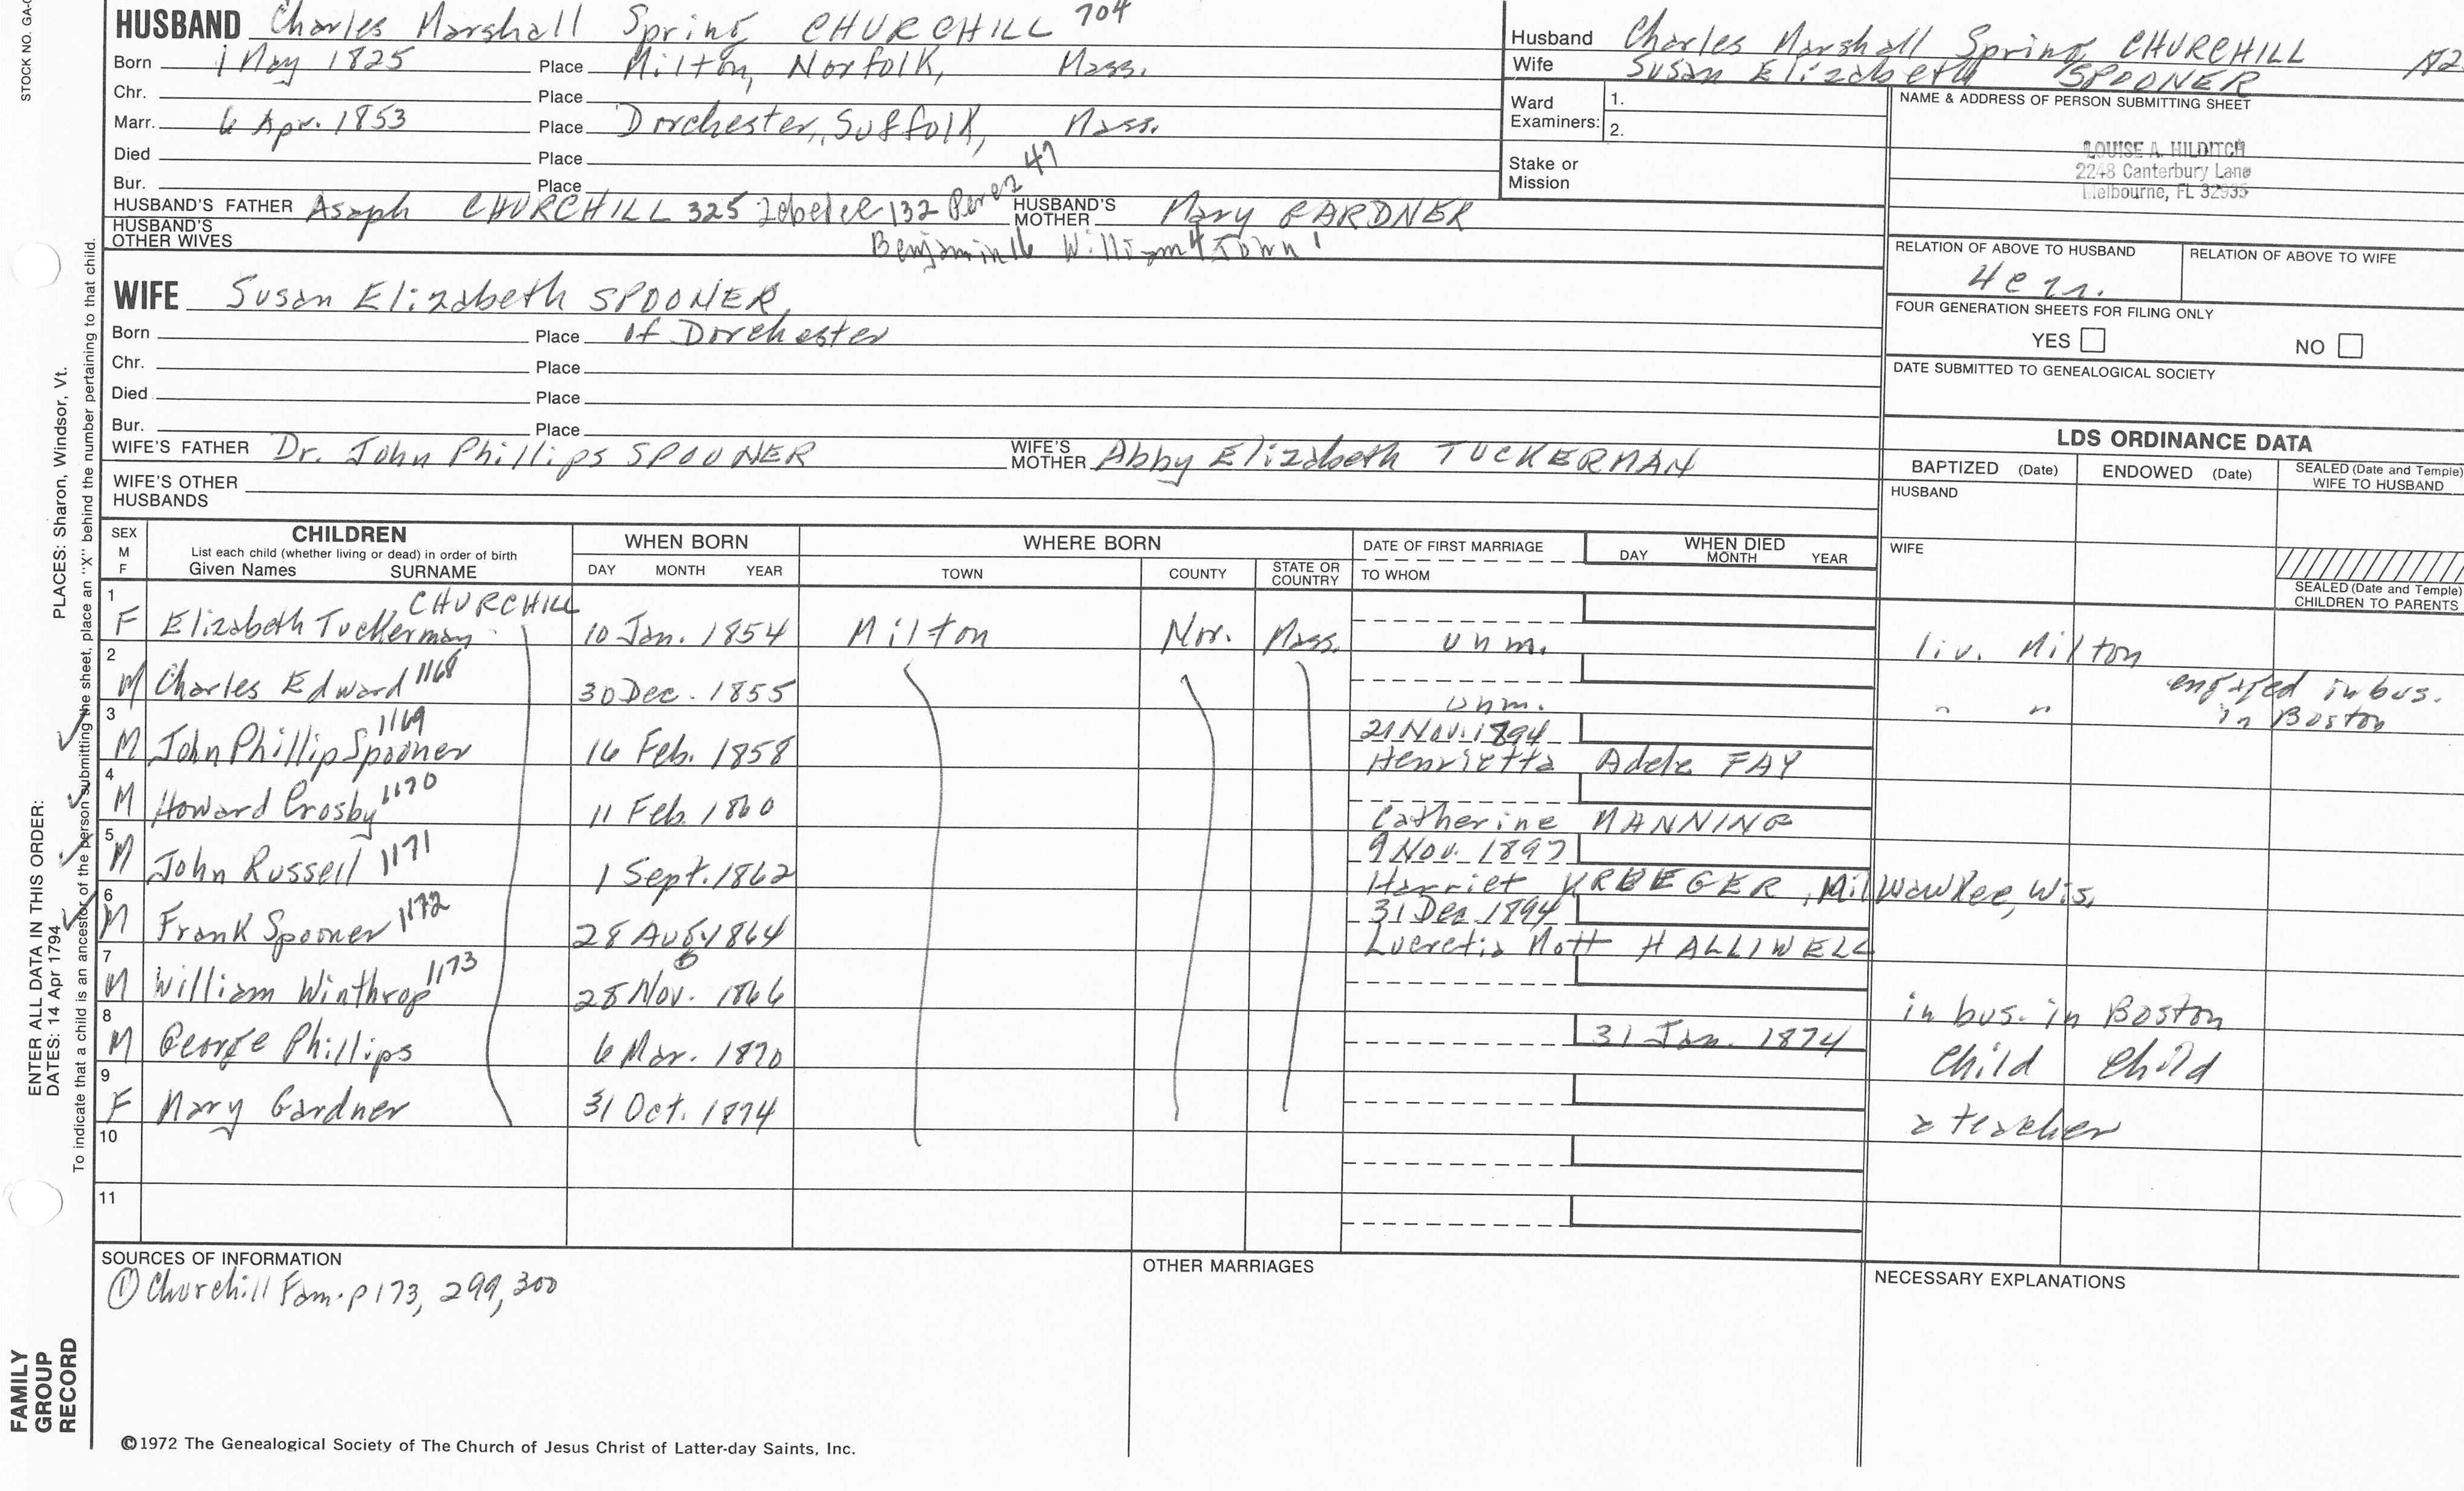 STOCK NO. GA-
HUSBAND Charles Marshall Spring CHURCHILL 704
Born 1 May 1825 Place Milton, Norfolk, Mass.
Chr. Place
Marr. 6 Apr. 1853 Place Dorchester, Suffolk, Mass.
Died Place
Bur. Place
HUSBAND'S FATHER Asaph CHURCHILL 325 Zebedee 132 Perez 47 HUSBAND'S MOTHER Mary GARDNER
HUSBAND'S OTHER WIVES
Benjamin 16 William 4 John 1
WIFE Susan Elizabeth SPOONER
Born Place of Dorchester
Chr. Place
Died Place
Bur. Place
WIFE'S FATHER Dr. John Phillips SPOONER WIFE'S MOTHER Abby Elizabeth TUCKERMAN
WIFE'S OTHER HUSBANDS
Husband Charles Marshall Spring CHURCHILL
Wife Susan Elizabeth SPOONER
Ward Examiners: 1.
2.
Stake or Mission
NAME & ADDRESS OF PERSON SUBMITTING SHEET
LOUISE A. HILDITCH
2248 Canterbury Lane
Melbourne, FL 32935
RELATION OF ABOVE TO HUSBAND
RELATION OF ABOVE TO WIFE
FOUR GENERATION SHEETS FOR FILING ONLY
YES NO
DATE SUBMITTED TO GENEALOGICAL SOCIETY
LDS ORDINANCE DATA
BAPTIZED (Date) ENDOWED (Date) SEALED (Date and Temple) WIFE TO HUSBAND
HUSBAND
WIFE
SEALED (Date and Temple) CHILDREN TO PARENTS
SEX M F
CHILDREN
List each child (whether living or dead) in order of birth
Given Names SURNAME
WHEN BORN DAY MONTH YEAR
WHERE BORN TOWN COUNTY STATE OR COUNTRY
DATE OF FIRST MARRIAGE
TO WHOM
WHEN DIED DAY MONTH YEAR
1 F Elizabeth Tuckerman CHURCHILL 10 Jan. 1854 Milton Nor. Mass. unm. liv. Milton
2 M Charles Edward 1168 30 Dec. 1855 unm. " " engaged in bus. in Boston
3 M John Phillip Spooner 1169 16 Feb. 1858 21 Nov. 1894 Henrietta Adele FAY
4 M Howard Crosby 1170 11 Feb. 1860 Catherine MANNING
5 M John Russell 1171 1 Sept. 1862 9 Nov. 1897 Harriet KREEGER, Milwawkee, Wis.
6 M Frank Spooner 1172 28 Aug 1864 31 Dec 1894 Lucretia Mott HALLIWELL
7 M William Winthrop 1173 28 Nov. 1866 in bus. in Boston
8 M George Phillips 6 Mar. 1870 31 Jan. 1874 Child Child
9 F Mary Gardner 31 Oct. 1874 a teacher
10
11
SOURCES OF INFORMATION
① Churchill Fam. p 173, 299, 300
OTHER MARRIAGES
NECESSARY EXPLANATIONS
©1972 The Genealogical Society of The Church of Jesus Christ of Latter-day Saints, Inc.
FAMILY GROUP RECORD
ENTER ALL DATA IN THIS ORDER:
DATES: 14 Apr 1794
PLACES: Sharon, Windsor, Vt.
To indicate that a child is an ancestor of the person submitting the sheet, place an "X" behind the number pertaining to that child.